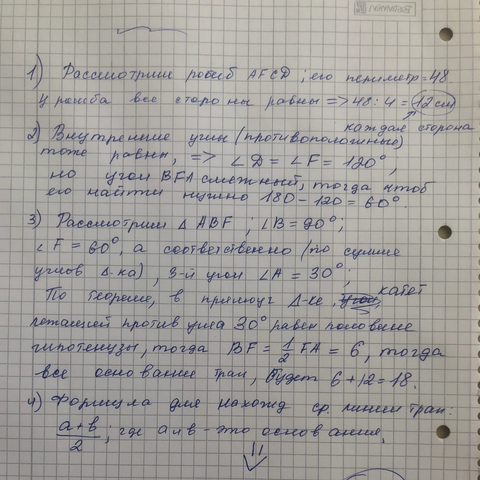 1) Рассмотрим ромб AFCD; его периметр = 48
У ромба все стороны равны => 48:4 = 12 см
каждая сторона
2) Внутренние углы (противоположные)
тоже равны, => ∠D = ∠F = 120°,
но угол BFA смежный, тогда чтоб
его найти нужно 180 - 120 = 60°.
3) Рассмотрим Δ ABF; ∠B = 90°;
∠F = 60°, а соответственно (по сумме
углов Δ-ка), 3-й угол ∠A = 30°;
По теореме, в прямоуг Δ-ке, катет
лежащей против угла 30° равен половине
гипотенузы, тогда BF = 1/2 FA = 6, тогда
все основание трап, будет 6+12 = 18.
4) Формула для нахожд ср. линии трап:
a+b/2; где a и b - это основания,